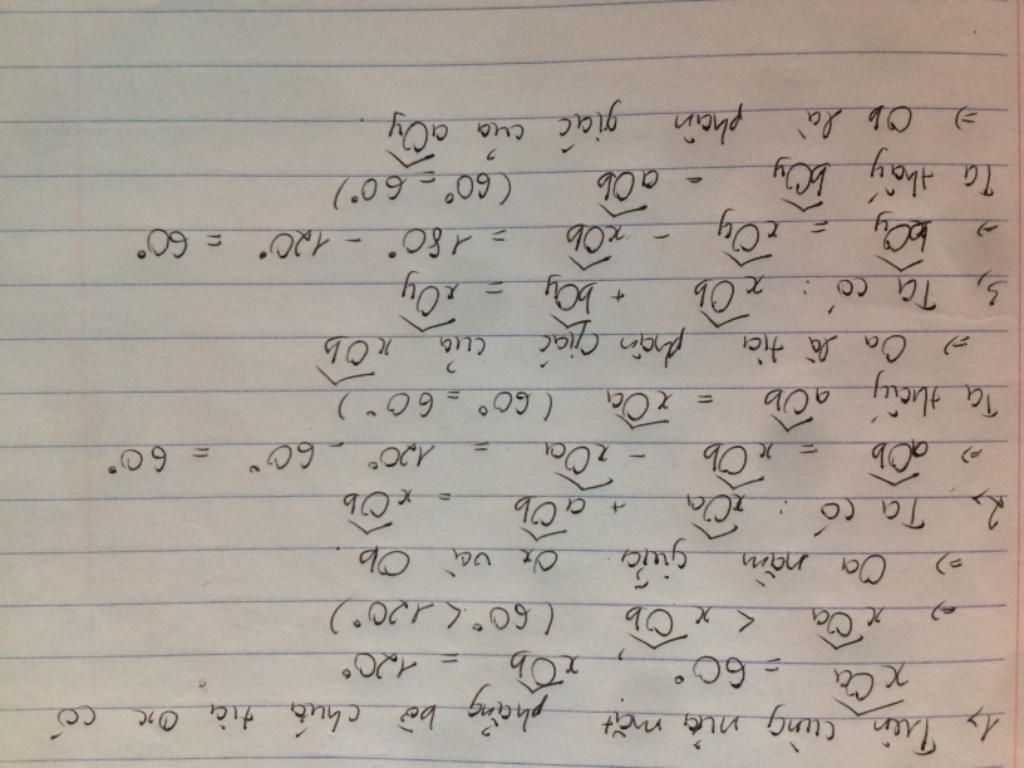 1, Trên cùng nửa mặt phẳng bờ chứa tia Ox có
xOa = 60°, xOb = 120°
⇒ xOa < xOb (60° < 120°)
⇒ Oa nằm giữa Ox và Ob
2, Ta có : xOa + aOb = xOb
⇒ aOb = xOb - xOa = 120° - 60° = 60°
Ta thấy aOb = xOa (60° = 60°)
⇒ Oa là tia phân giác của xOb
3, Ta có : xOb + bOy = xOy
⇒ bOy = xOy - xOb = 180° - 120° = 60°
Ta thấy bOy = aOb (60° = 60°)
⇒ Ob là phân giác của aOy